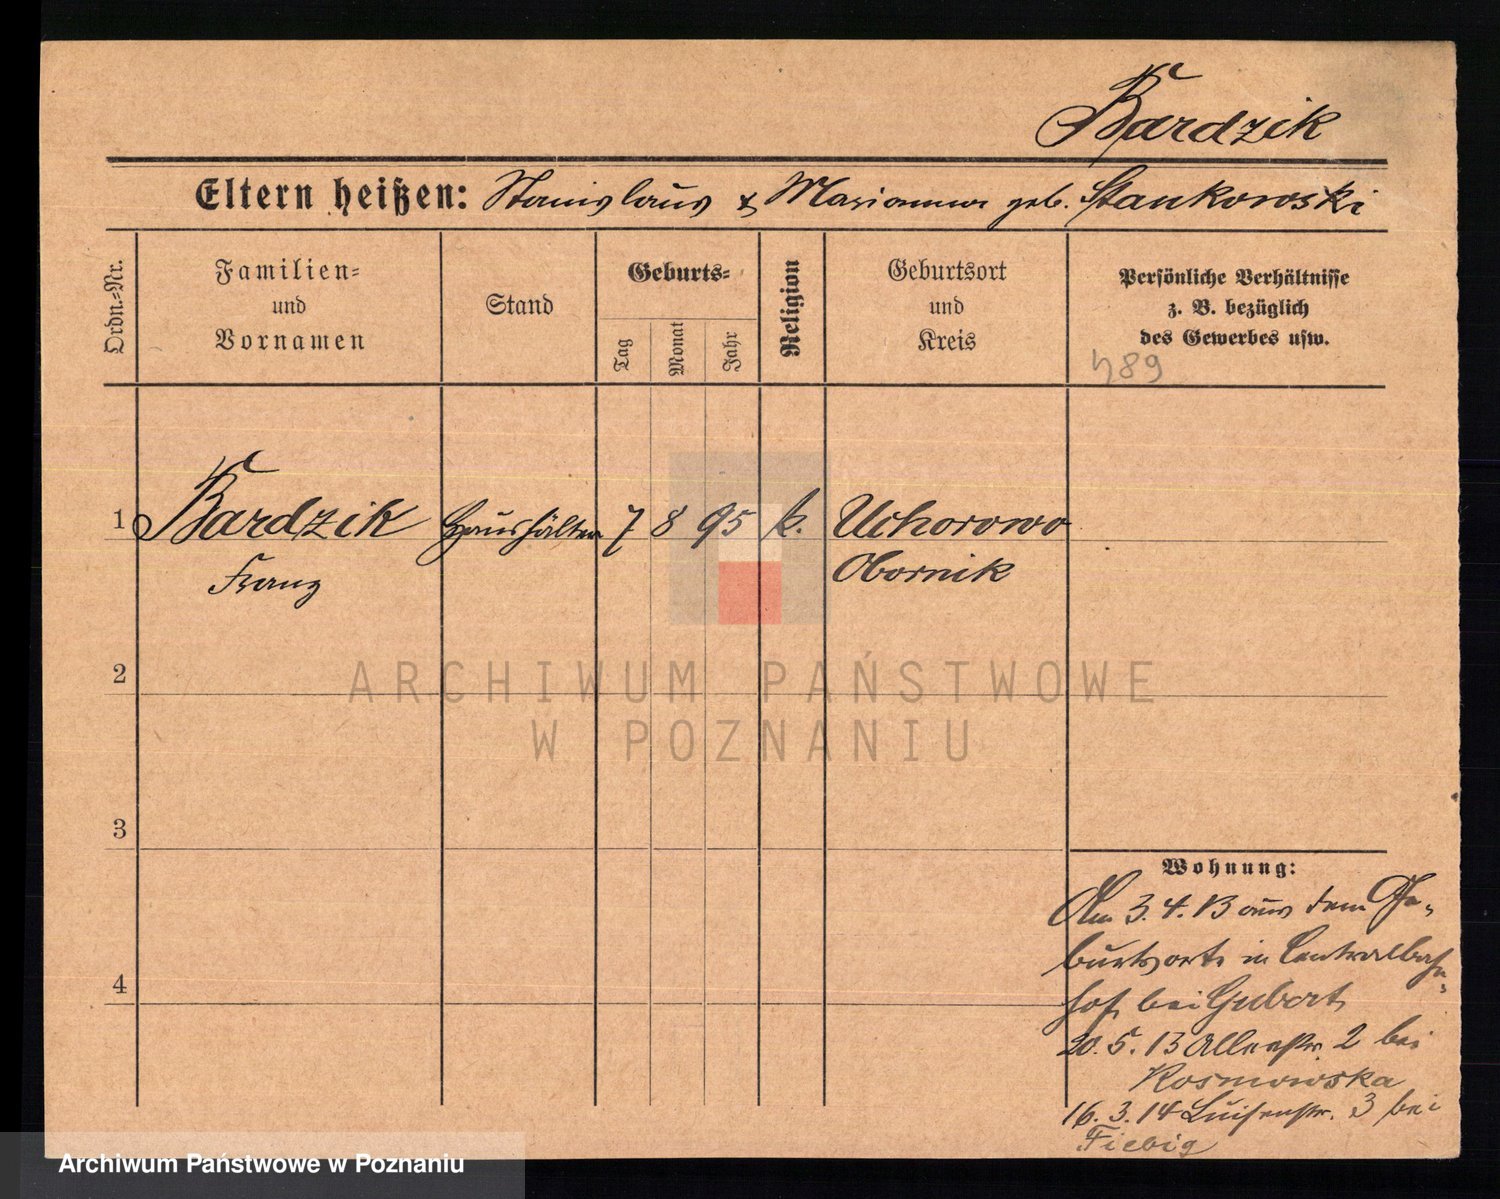 Bardzik
Eltern heißen: Stanislaus & Marianna geb. Stankowski
Ordn.=Nr.
Familien=
und
Vornamen
Stand
Geburts=
Tag
Monat
Jahr
Religion
Geburtsort
und
Kreis
Persönliche Verhältnisse
z. B. bezüglich
des Gewerbes usw.
489
1 Bardzik Haushälter 7 8 95 k. Uchorowo
Franz Obornik
2
ARCHIWUM PAŃSTWOWE
W POZNANIU
3
Wohnung:
Am 3.4.13 aus dem Ge-
burtsorte in Centralbahn-
4
hof bei Gubert
20.5.13 2 bei
Kosmowska
16.3.14 Luisenstr. 3 bei
Fiebig
Archiwum Państwowe w Poznaniu